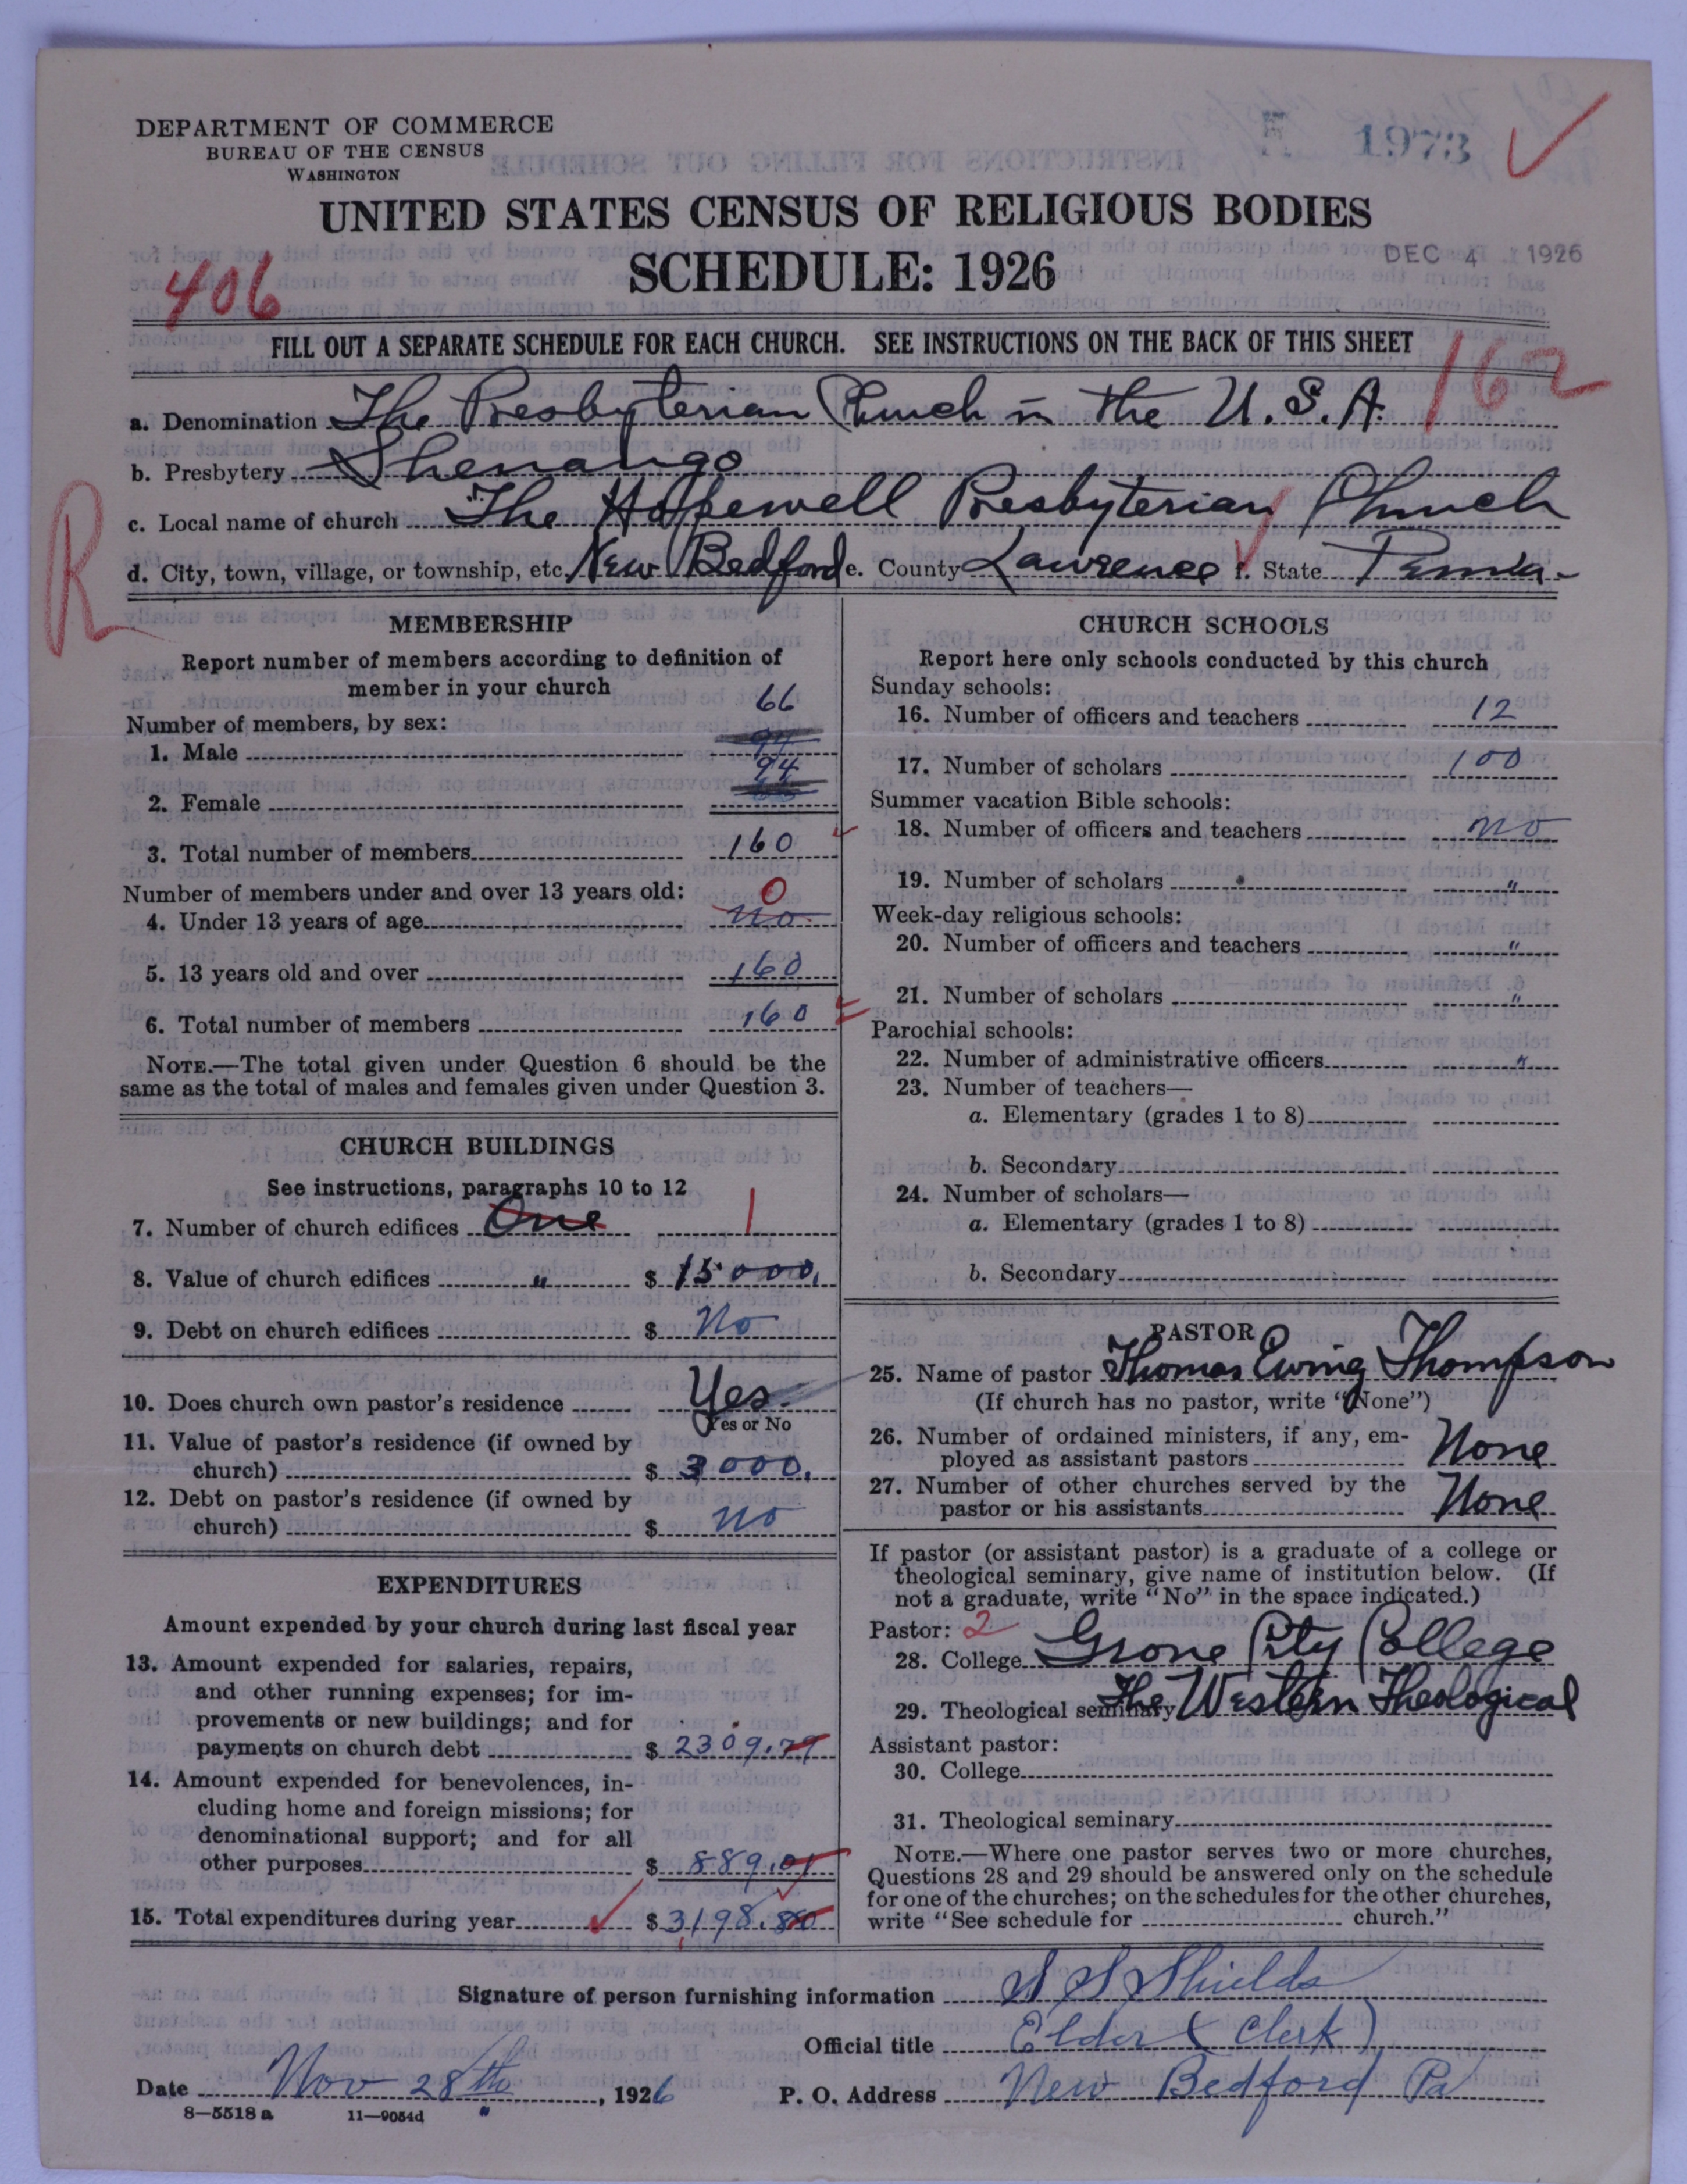 DEPARTMENT OF COMMERCE
BUREAU OF THE CENSUS
WASHINGTON
1973
UNITED STATES CENSUS OF RELIGIOUS BODIES
SCHEDULE: 1926
DEC 4 1926
406
FILL OUT A SEPARATE SCHEDULE FOR EACH CHURCH. SEE INSTRUCTIONS ON THE BACK OF THIS SHEET
162
a. Denomination The Presbyterian Church in the U.S.A.
b. Presbytery Shenango
c. Local name of church The Hopewell Presbyterian Church
R
d. City, town, village, or township, etc. New Bedford e. County Lawrence f. State Penna.
MEMBERSHIP
Report number of members according to definition of
member in your church
Number of members, by sex:
66
1. Male
94
2. Female
3. Total number of members 160
Number of members under and over 13 years old: 0
4. Under 13 years of age No
5. 13 years old and over 160
6. Total number of members 160
NOTE.—The total given under Question 6 should be the
same as the total of males and females given under Question 3.
CHURCH BUILDINGS
See instructions, paragraphs 10 to 12
7. Number of church edifices One 1
8. Value of church edifices " $ 15000.
9. Debt on church edifices $ No
10. Does church own pastor's residence Yes.
Yes or No
11. Value of pastor's residence (if owned by
church) $ 3000.
12. Debt on pastor's residence (if owned by
church) $ No
EXPENDITURES
Amount expended by your church during last fiscal year
13. Amount expended for salaries, repairs,
and other running expenses; for im-
provements or new buildings; and for
payments on church debt $ 2309.79
14. Amount expended for benevolences, in-
cluding home and foreign missions; for
denominational support; and for all
other purposes $ 889.01
15. Total expenditures during year $ 3198.80
CHURCH SCHOOLS
Report here only schools conducted by this church
Sunday schools:
16. Number of officers and teachers 12
17. Number of scholars 100
Summer vacation Bible schools:
18. Number of officers and teachers No
19. Number of scholars "
Week-day religious schools:
20. Number of officers and teachers "
21. Number of scholars "
Parochial schools:
22. Number of administrative officers "
23. Number of teachers—
a. Elementary (grades 1 to 8)
b. Secondary
24. Number of scholars—
a. Elementary (grades 1 to 8)
b. Secondary
PASTOR
25. Name of pastor Thomas Ewing Thompson
(If church has no pastor, write "None")
26. Number of ordained ministers, if any, em-
ployed as assistant pastors None
27. Number of other churches served by the
pastor or his assistants None
If pastor (or assistant pastor) is a graduate of a college or
theological seminary, give name of institution below. (If
not a graduate, write "No" in the space indicated.)
Pastor: 2
28. College Grove City College
29. Theological seminary The Western Theological
Assistant pastor:
30. College
31. Theological seminary
NOTE.—Where one pastor serves two or more churches,
Questions 28 and 29 should be answered only on the schedule
for one of the churches; on the schedules for the other churches,
write "See schedule for church."
Signature of person furnishing information S S Shields
Official title Elder (Clerk)
Date Nov 28th, 1926 P. O. Address New Bedford Pa
8—5518 a 11—9054d